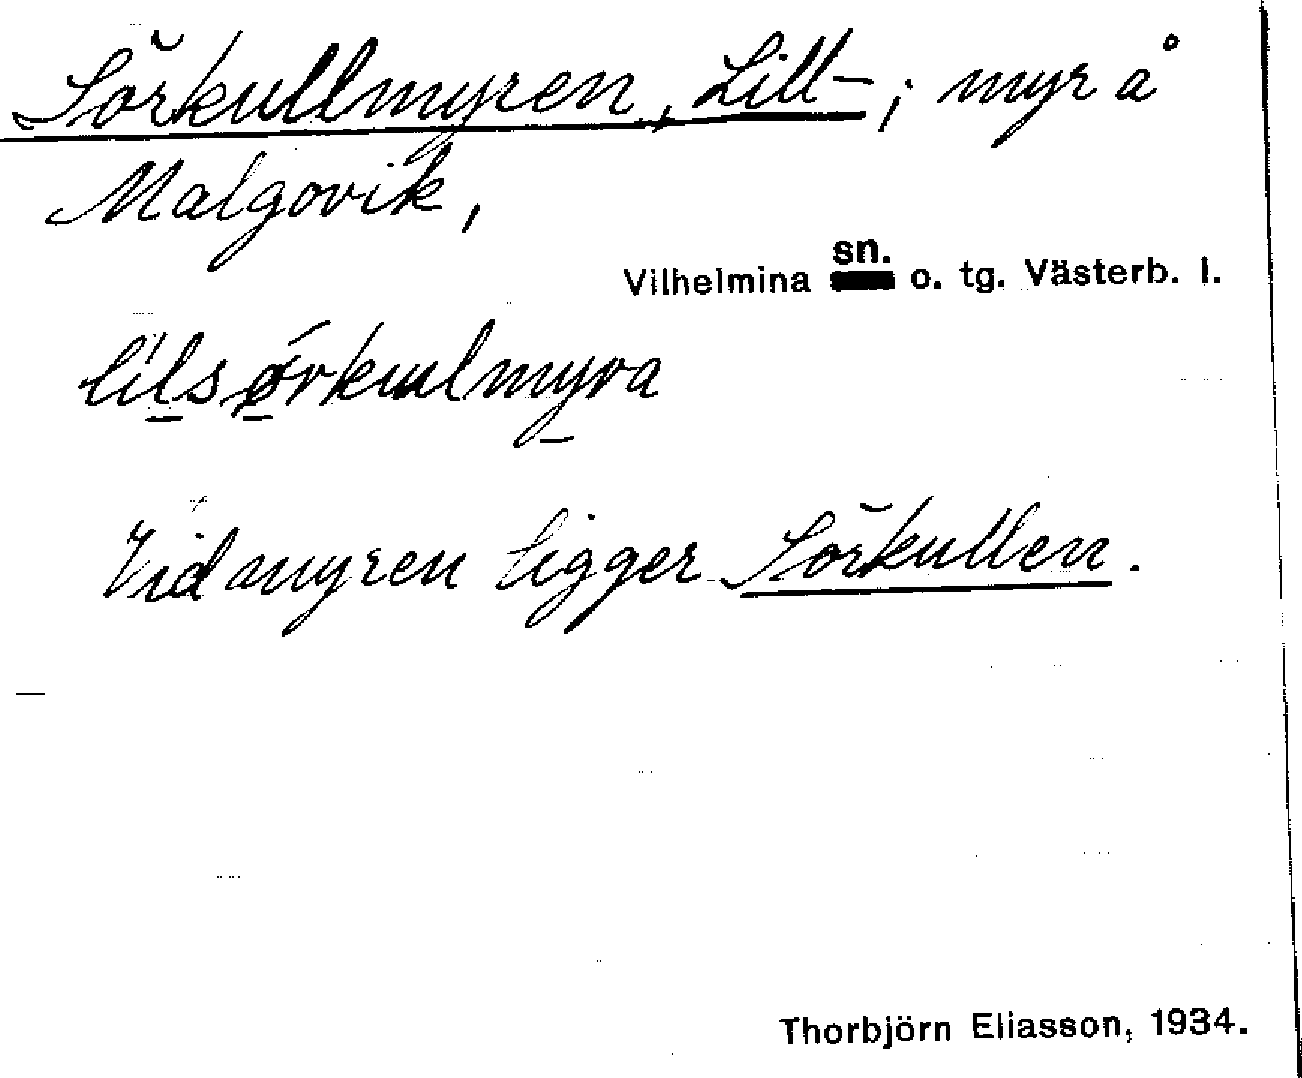 Sörkullmyren, Lill-; myr å
Malgovik,
Vilhelmina sn. o. tg. Västerb. l.
lilsørkulmyra
Vid myren ligger Sörkullen.
Thorbjörn Eliasson, 1934.